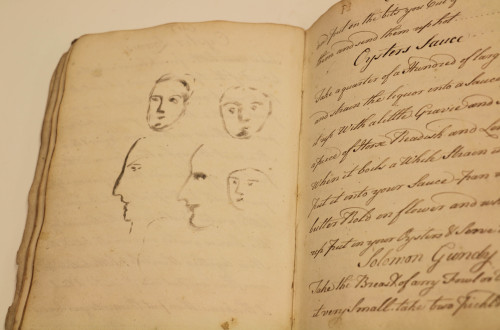 and put on the bits you Cut of
them and send them up hot
Oysters Sauce
Take a quarter of a Hundred of larg
and strain the liquor into a Sauce
With a little Gravie and
a peice of Horse Readish and
When it boils a While Strain
Put it into your Sauce pan
butter Role in flower and
up put in your Oysters & Serve
Solomon Gundy
Take the Breast of any Fowl or
it very Small take two Pickle